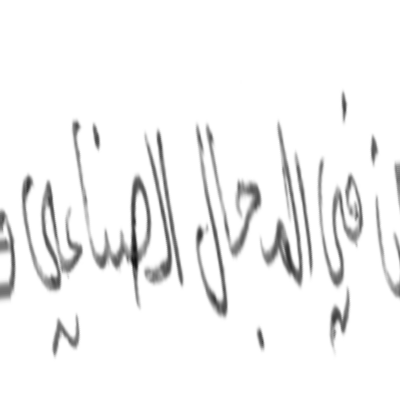 في المجال الصناعي